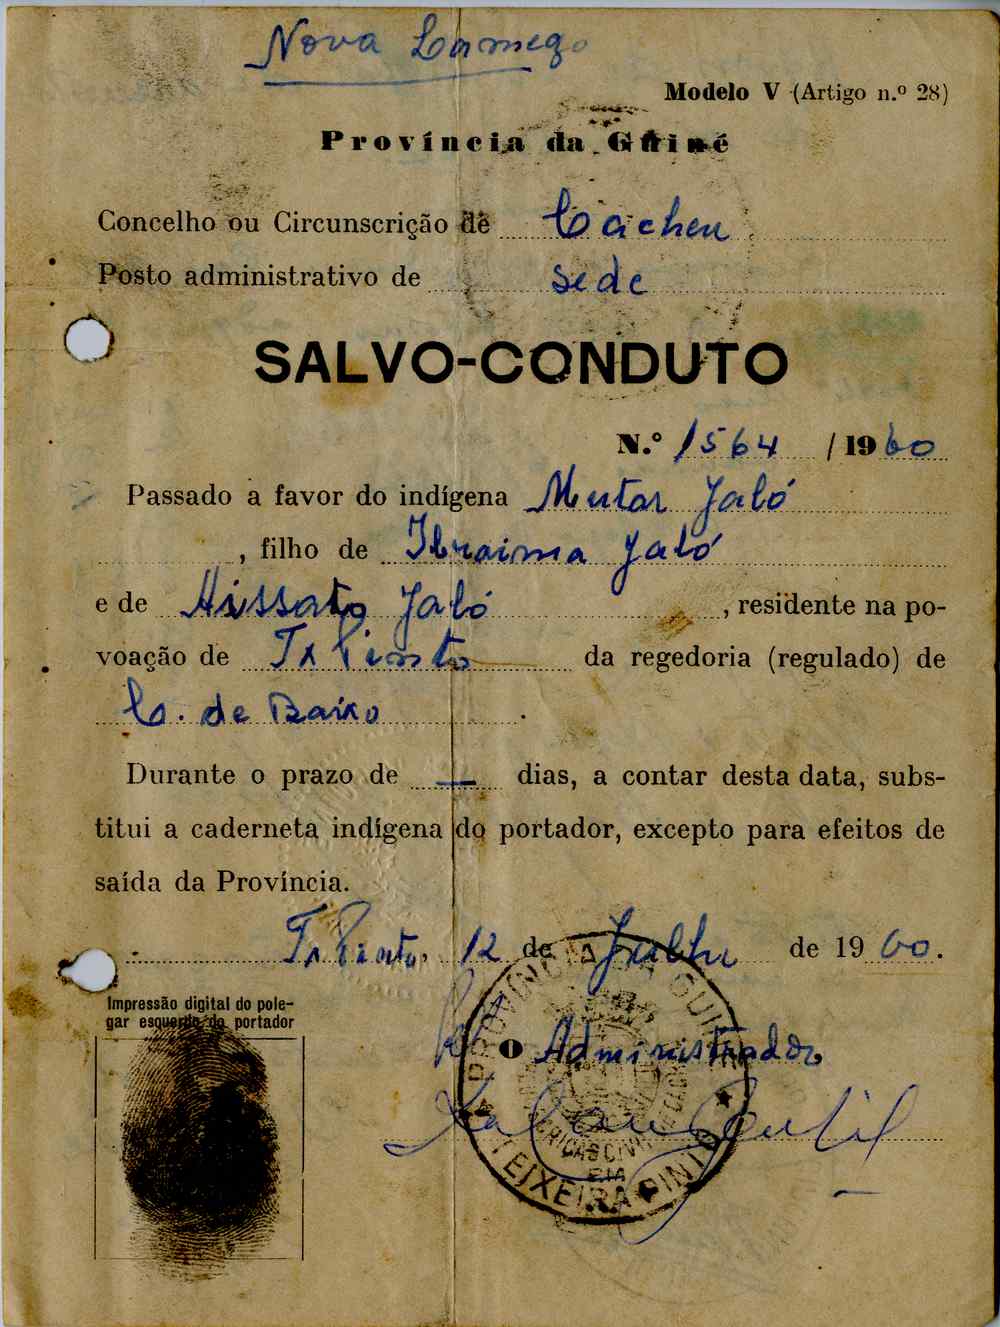 Nova Lamego
Modelo V (Artigo n.º 28)
Província da Guiné
Concelho ou Circunscrição de Cacheu
Posto administrativo de sede
SALVO-CONDUTO
N.º 1564 / 1960
Passado a favor do indígena Mutar Jaló
, filho de Ibraima Jaló
e de Aissato Jaló , residente na po-
voação de Tx Pinto da regedoria (regulado) de
C. de Baixo .
Durante o prazo de — dias, a contar desta data, subs-
titui a caderneta indígena do portador, excepto para efeitos de
saída da Província.
Tx Pinto, 12 de Julho de 1960.
Impressão digital do pole-
gar esquerdo do portador
O Administrador
PROVÍNCIA DA GUINÉ
EM
TEIXEIRA PINTO